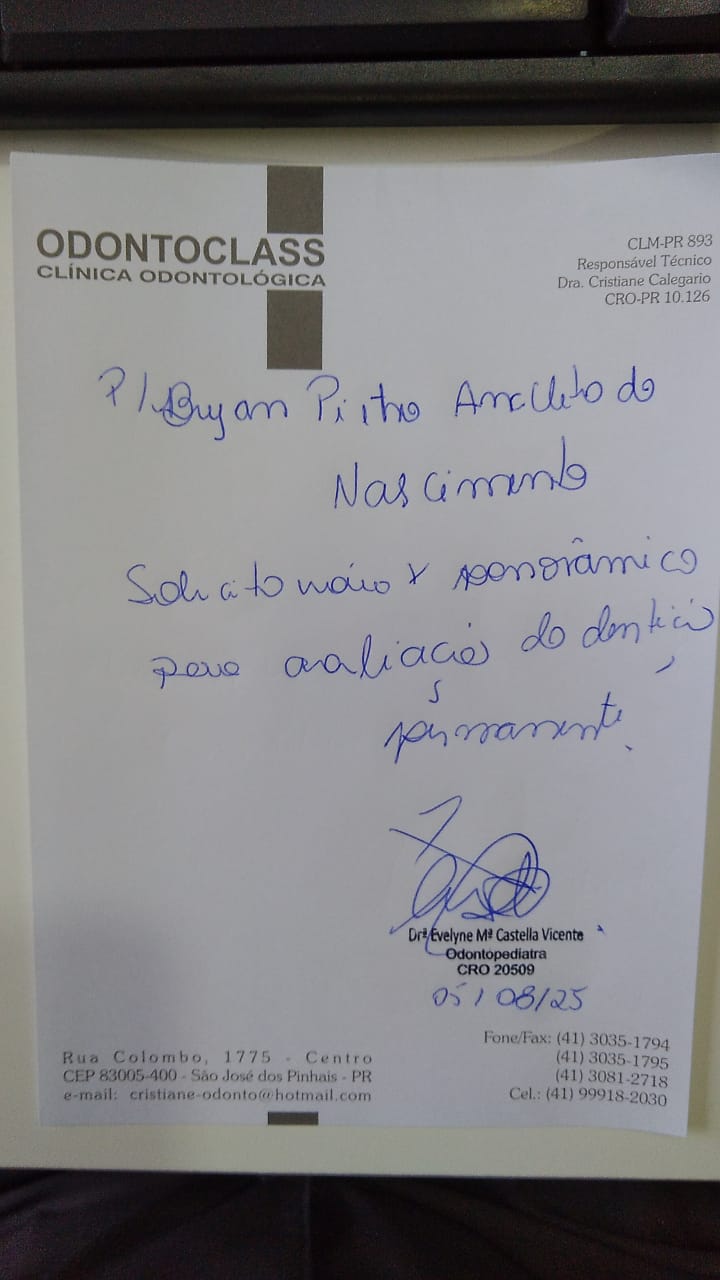 ODONTOCLASS
CLÍNICA ODONTOLÓGICA
CLM-PR 893
Responsável Técnico
Dra. Cristiane Calegario
CRO-PR 10.126
P/ Bryan Anacleto do
Nascimento
Solicito raio x panorâmico
para avaliação da dentição
permanente.
Drª Evelyne Mª Castella Vicente
Odontopediatra
CRO 20509
05/08/25
Rua Colombo, 1775 - Centro
CEP 83005-400 - São José dos Pinhais - PR
e-mail: cristiane-odonto@hotmail.com
Fone/Fax: (41) 3035-1794
(41) 3035-1795
(41) 3081-2718
Cel.: (41) 99918-2030